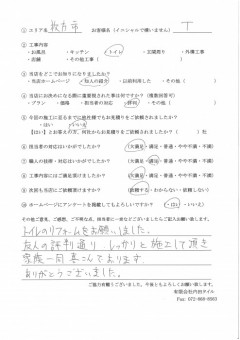 ① エリア名 枚方市 お客様名（イニシャルで構いません） T
② 工事内容
・お風呂 ・キッチン ・トイレ ・玄関周り ・外構工事
・店舗 ・その他工事（ ）
③ 当店をどこでお知りになりましたか？
・当店ホームページ ・友人の紹介 ・以前利用した ・その他（ ）
④ 当店にお決めになる際に重要視された事は何ですか？（複数回答可）
・プラン ・価格 ・担当者の対応 ・評判 ・その他（ ）
⑤ 今回の施工に至るまでに他社様でもお見積りをご依頼されましたか？
・はい ・いいえ
【はい】とお客えの方、何社からお見積りをご依頼されましたか？（ 社）
⑥ 担当者の対応はいかがでしたか？ （大満足・満足・普通・やや不満・不満）
⑦ 職人の技術・対応はいかがでしたか？ （大満足・満足・普通・やや不満・不満）
⑧ 工事内容にはご満足頂けましたか？ （大満足・満足・普通・やや不満・不満）
⑨ 次回も当店にご依頼頂けますか？ （依頼する・わからない・依頼しない）
⑩ ホームページにアンケートを掲載してもよろしいですか？ （・はい ・いいえ）
その他ご意見、ご感想、ご不明な点、担当者に一言などございましたらご記入お願い致します。
トイレのリフォームをお願いしました。
友人の評判通り、しっかりと施工して頂き
家族一同喜こんでおります。
ありがとうございました。
ご協力有難うございました。今後ともよろしくお願い致します。
有限会社内田タイル